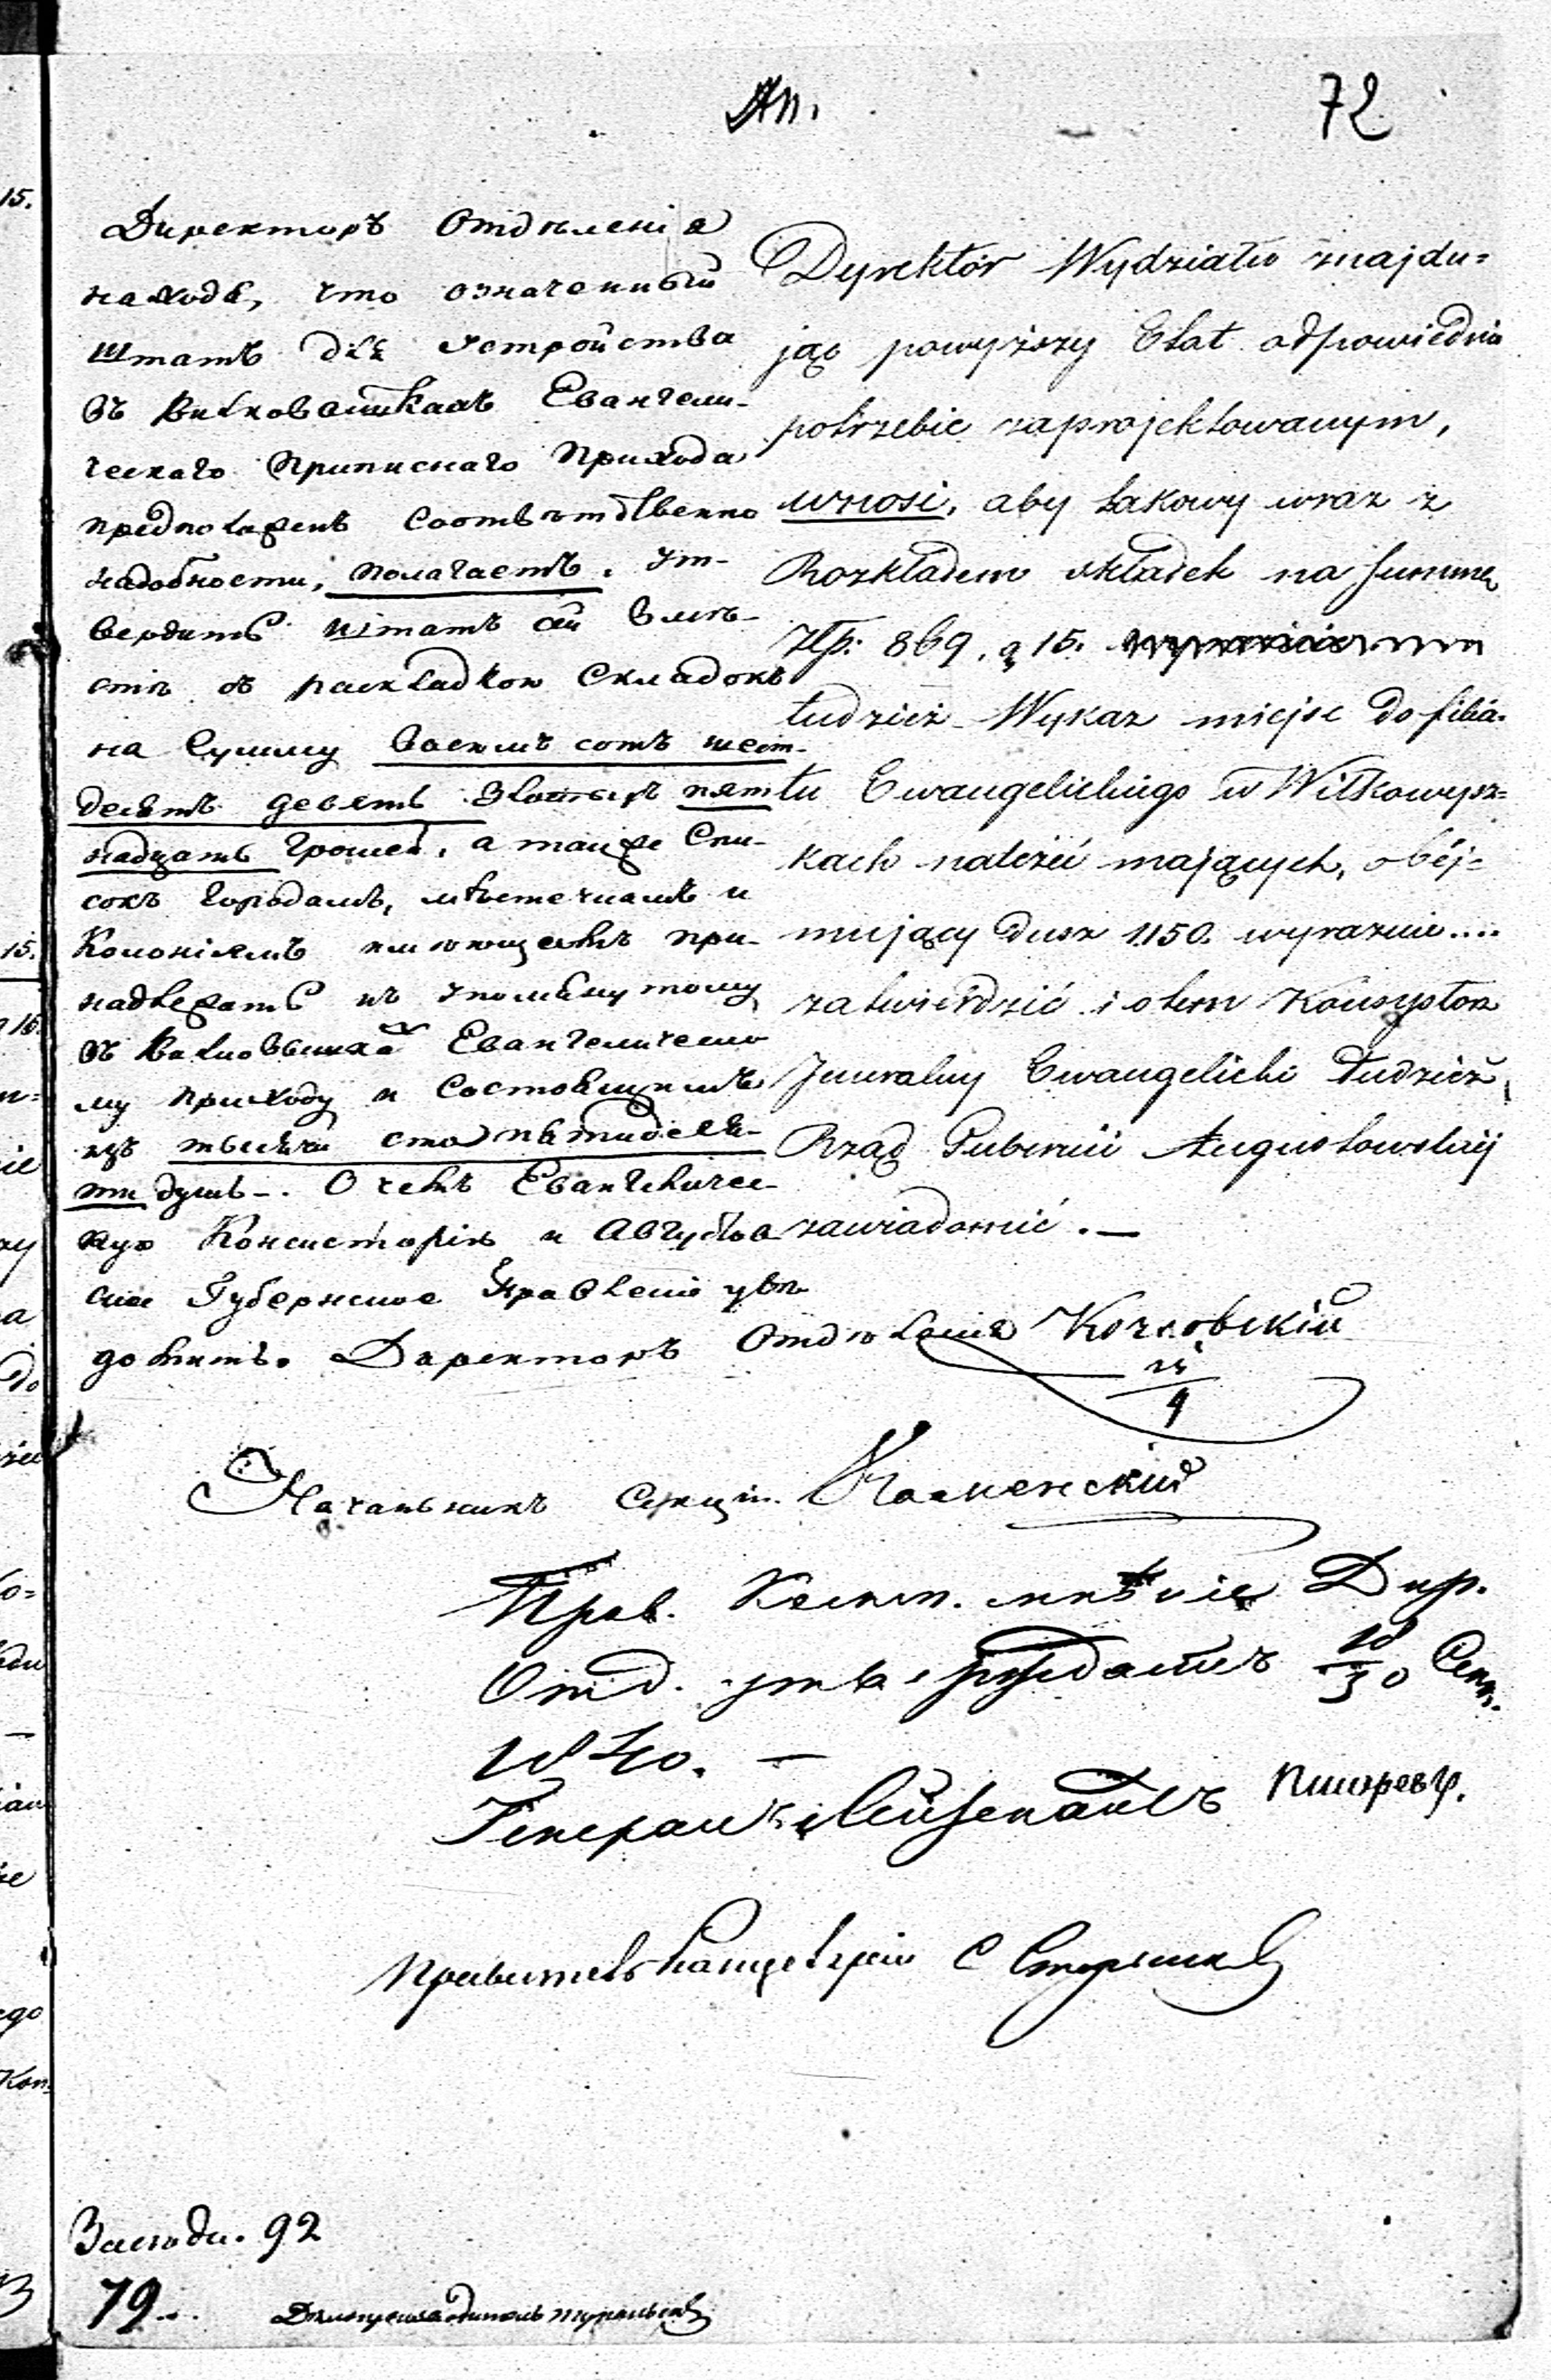 72
Директоръ Отдѣленія
находя, что означенный
штатъ для устройства
въ Вилковышкахъ Евангели-
ческаго Приписнаго Прихода
предположенъ соотвѣтственно
надобности, полагаетъ, ут-
вердить штатъ сей вмѣ-
стѣ съ раскладкою складокъ
на сумму восемь сотъ шест-
десятъ девять злотыхъ пят-
надцать грошей, а также Спи-
сокъ городамъ, мѣстечкамъ и
Колоніямъ имѣющимъ при-
надлежать къ упомянутому
въ Вилковышках Евангелическо
му приходу и состоящимъ
изъ тысячи сто пятидеся-
ти душъ -. О чемъ Евангеличес-
кую Консисторію и Августов
ское Губернское Правленіе увѣ
домить. Директоръ Отдѣленія
Dyrektor Wydziału znajdu=
jąc powyższy Etat odpowiednio
potrzebie zaprojektowanym,
wnosi, aby takowy wraz z
Rozkładem składek na summę
Złp: 869. g 15.
tudzież Wykaz miejsc do filia-
łu Ewangelickiego w Wilkowysz=
kach należeć mających, obej=
mujący dusz 1150. wyraźnie....
zatwierdzić i o tem Konsystorz
Jeneralny Ewangelicki tudzież
Rząd Gubernii Augustowskiej
zawiadomić. —
9
Начальникъ Секціи
Прав. Комм. мнѣніе Дир.
Отд. утверждаетъ 18/30 Сент.
1840. —
Генералъ Лейтенантъ Писаревъ.
Правитель Канцеляріи С
Засѣда. 92
79